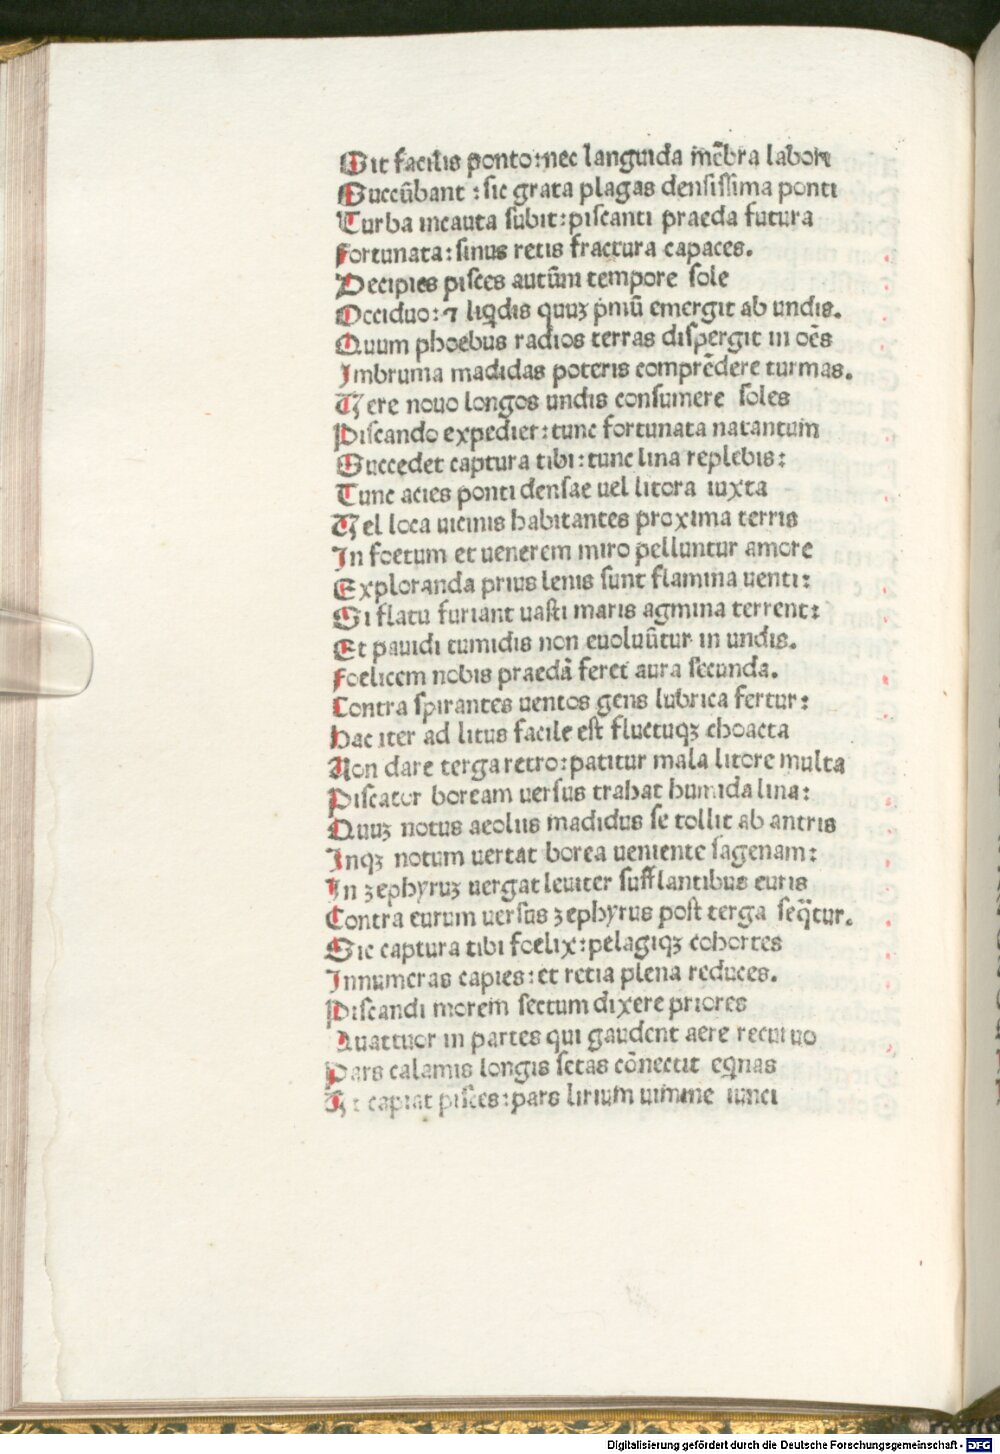 Sit facilis ponto: nec languida mẽbra labori
Succũbant : sic grata plagas densissima ponti
Turba incauta subit: piscanti praeda futura
Fortunata: sinus retis fractura capaces.
Decipies pisces autũm tempore sole
Occiduo: ⁊ liq̃dis quuꝫ pͥmũ emergit ab undis.
Quum phoebus radios terras dispergit in oẽs
Imbruma madidas poteris comprẽdere turmas.
Vere nouo longos undis consumere soles
Piscando expediet: tunc fortunata natantum
Succedet captura tibi: tunc lina replebis:
Tunc acies ponti densae uel litora iuxta
Vel loca uicinis habitantes proxima terris
In foetum et uenerem miro pelluntur amore
Exploranda prius lenis sunt flamina uenti:
Si flatu furiant uasti maris agmina terrent:
Et pauidi tumidis non euoluũtur in undis.
Foelicem nobis praedã feret aura secunda.
Contra spirantes uentos gens lubrica fertur:
Hac iter ad litus facile est fluctuqꝫ choacta
Non dare terga retro: patitur mala litore multa
Piscator boream uersus trahat humida lina:
Quuꝫ notus aeolius madidus se tollit ab antris
Inqꝫ notum uertat borea ueniente sagenam:
In zephyruꝫ uergat leuiter sufflantibus euris
Contra eurum uersus zephyrus post terga seq̃tur.
Sic captura tibi foelix: pelagiqꝫ cohortes
Innumeras capies: et retia plena reduces.
Piscandi morem sectum dixere priores
Quattuor in partes qui gaudent aere recuruo
Pars calamis longis setas cõnectit eq̃nas
Vt capiat pisces: pars lirium uimine iunci
Digitalisierung gefördert durch die Deutsche Forschungsgemeinschaft - DFG